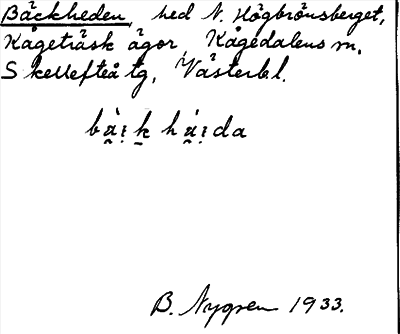 Bäckheden, hed N. Högbrönsberget,
Kågeträsk ägor, Kågedalens sn,
Skellefteå tg, Västerbl.
bä̀i̯k hä́i̯da
B. Nygren 1933.